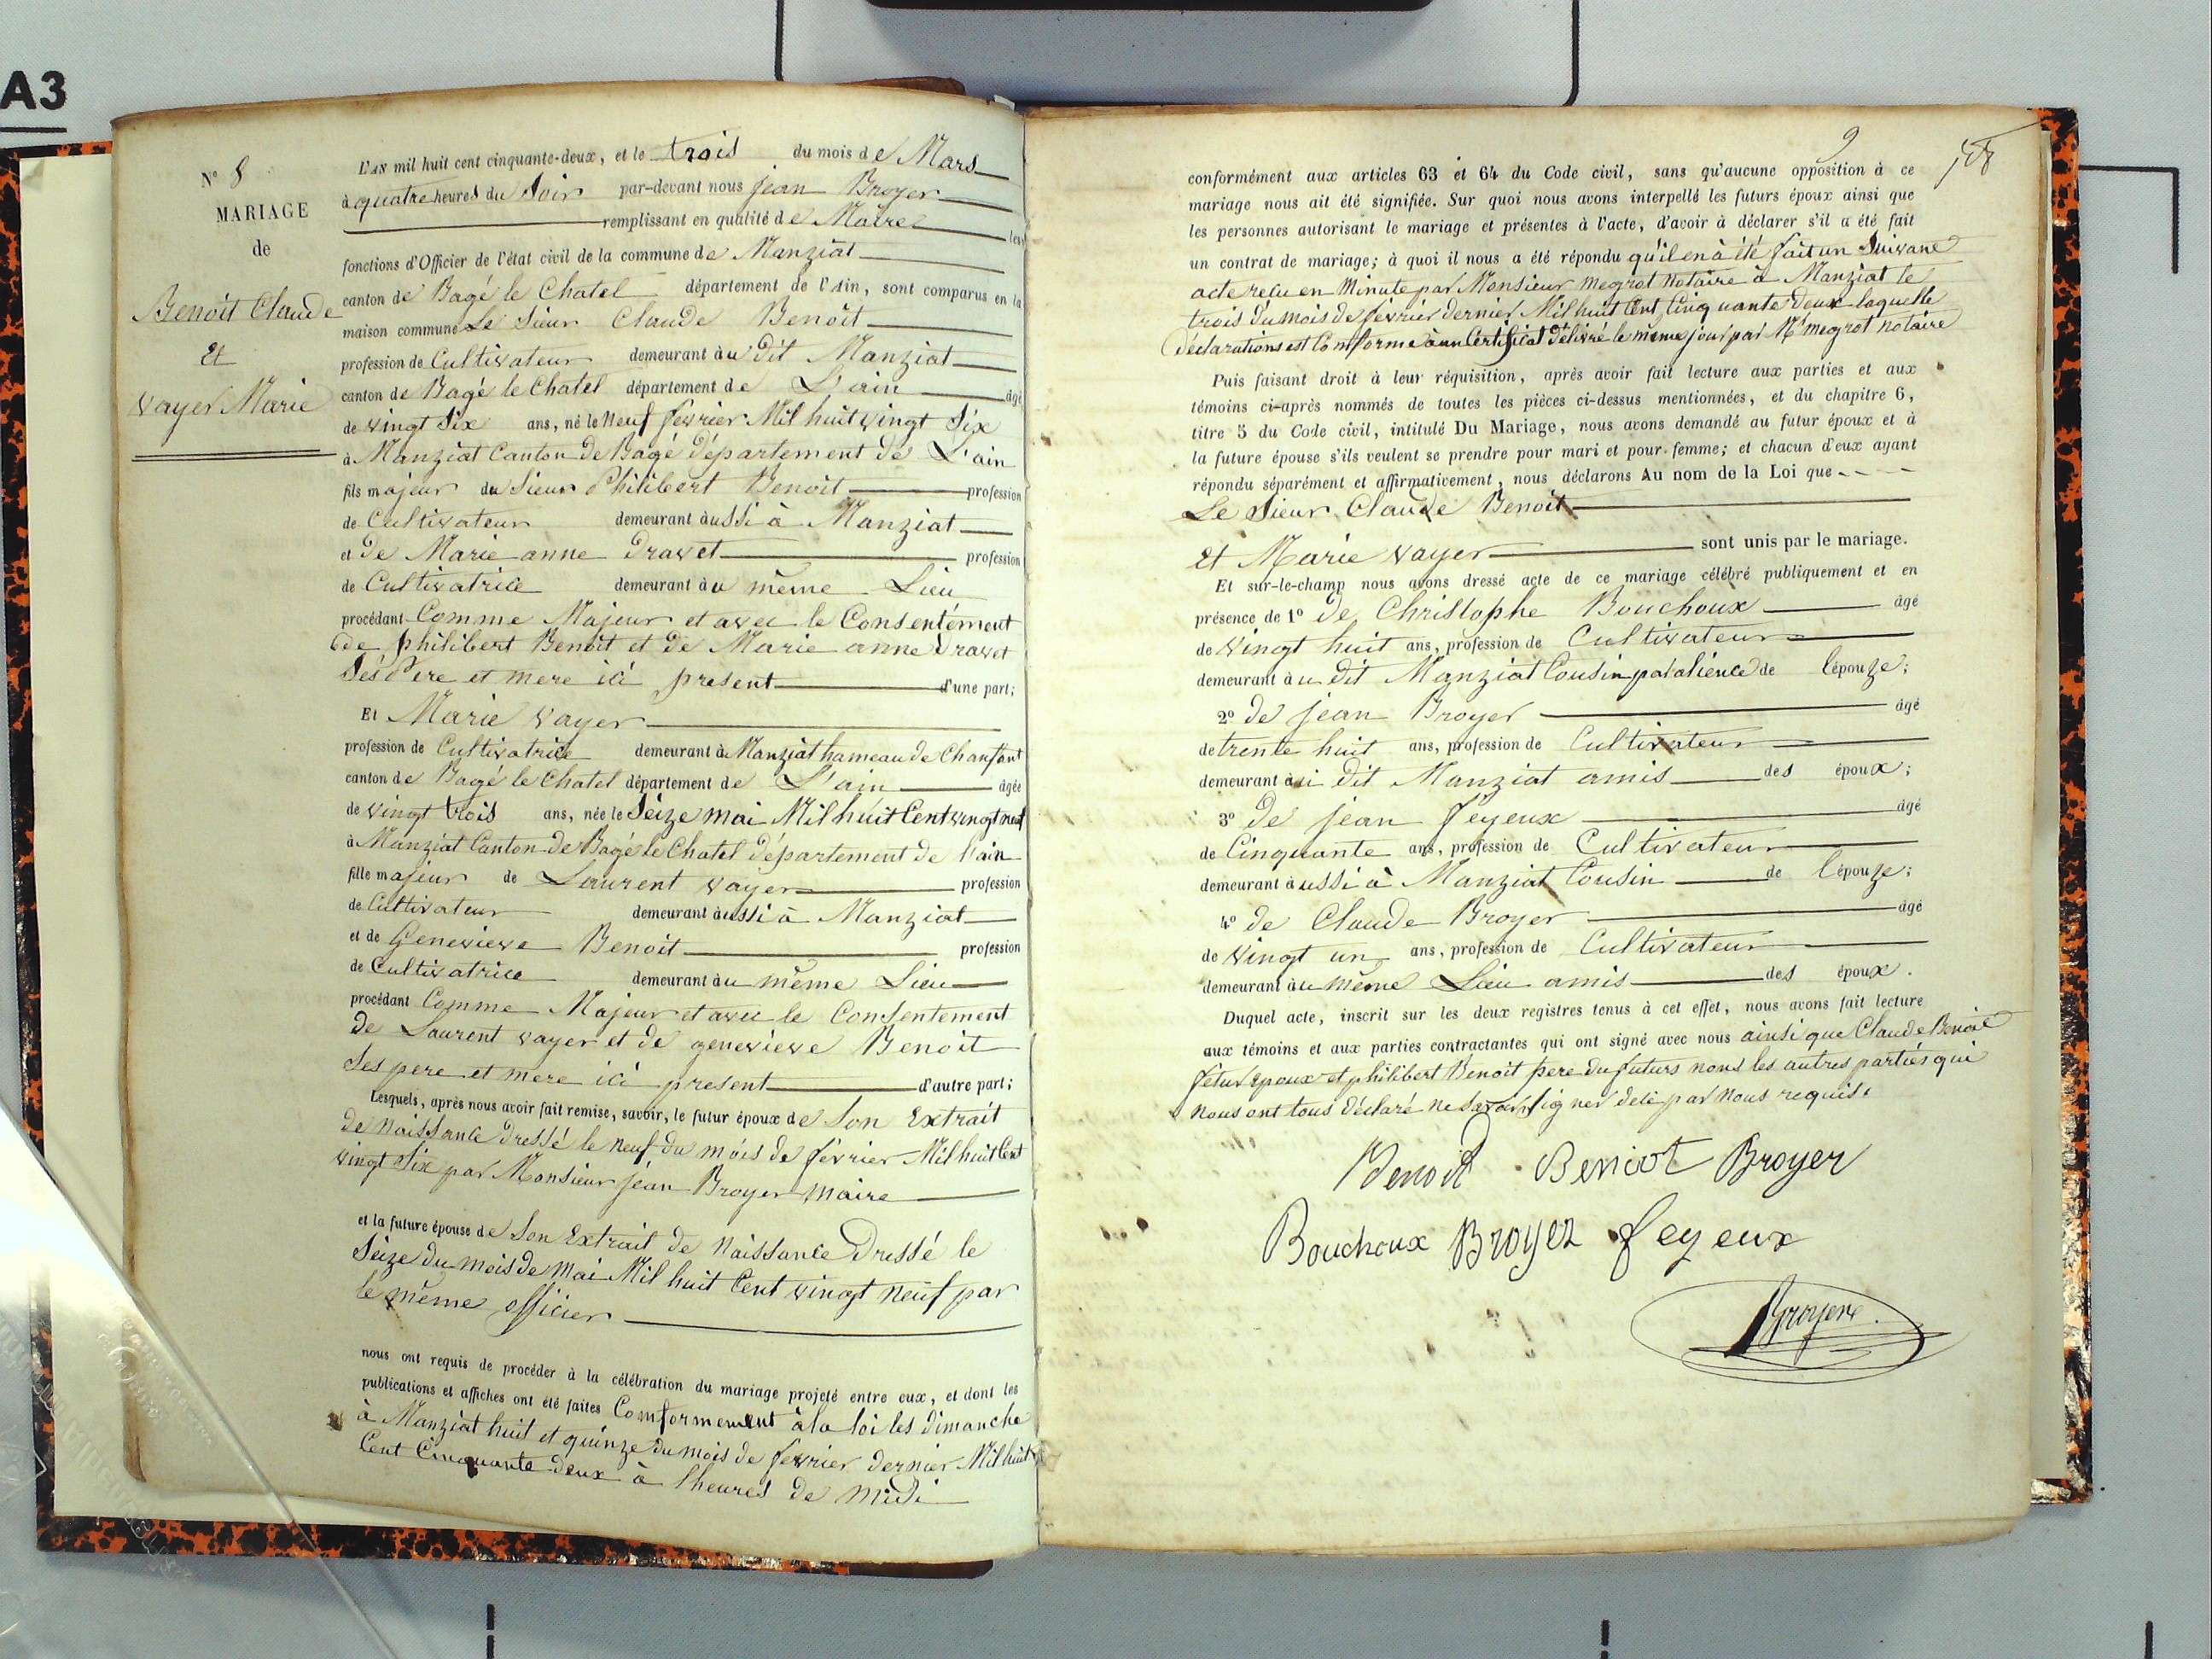 A3
N° 8
MARIAGE
de
Benoît Claude
Et
vayer Marie
L'AN mil huit cent cinquante-deux, et le trois du mois de Mars
à quatre heures du Soir par-devant nous jean Broyer
remplissant en qualité de Maire les
fonctions d'Officier de l'état civil de la commune de Manziat
canton de Bagé le Chatel département de l'Ain, sont comparus en la
maison commune Le Sieur Claude Benoît
profession de Cultivateur demeurant àu dit Manziat
canton de Bagé le Chatel département de L'ain âgé
de vingt Six ans, né le Neuf fevrier Mil huit vingt Six
à Manziat Canton de Bagé département de L'ain
fils majeur du Sieur Philibert Benoit profession
de Cultivateur demeurant àussi à Manziat
et de Marie anne dravet profession
de Cultivatrice demeurant àu même Lieu
procédant Comme Majeur et avec le Consentement
de philibert Benoît et de Marie anne dravet
Ses Pere et mere ici present d'une part;
Et Marie vayer
profession de Cultivatrice demeurant à Manziat hameau de Chanfant
canton de Bagé le Chatel département de L'ain âgée
de vingt trois ans, née le Seize mai Mil huit Cent vingt neuf
à Manziat Canton de Bagé le Chatel département de l'ain
fille majeur de Laurent vayer profession
de Cultivateur demeurant àussi à Manziat
et de Genevieve Benoit profession
de Cultivatrice demeurant àu même Lieu
procédant Comme Majeur et avec le Consentement
de Laurent vayer et de genevieve Benoit
Ses pere et mere ici present d'autre part;
Lesquels, après nous avoir fait remise, savoir, le futur époux de Son Extrait
de Naissance dressé le neuf du mois de fevrier Mil huit Cent
vingt Six par Monsieur jean Broyer Maire
et la future épouse de Son Extrait de Naissance Dressé le
Seize du mois de Mai Mil huit Cent vingt Neuf par
le même officier
nous ont requis de procéder à la célébration du mariage projeté entre eux, et dont les
publications et affiches ont été faites Comformement à la loi les dimanche
à Manziat huit et quinze du mois de fevrier dernier Mil huit
Cent Cinquante deux à l'heures de Midi
9
conformément aux articles 63 et 64 du Code civil, sans qu'aucune opposition à ce
mariage nous ait été signifiée. Sur quoi nous avons interpellé les futurs époux ainsi que
les personnes autorisant le mariage et présentes à l'acte, d'avoir à déclarer s'il a été fait
un contrat de mariage; à quoi il nous a été répondu qu'il en à été fait un Suivant
acte reçu en Minute par Monsieur megrot Notaire à Manziat le
trois du mois de fevrier dernier Mil huit Cent Cinquante deux laquelle
déclarations est Comforme à un Certificat délivré le même jour par Mr megrot notaire
Puis faisant droit à leur réquisition, après avoir fait lecture aux parties et aux
témoins ci-après nommés de toutes les pièces ci-dessus mentionnées, et du chapitre 6,
titre 5 du Code civil, intitulé Du Mariage, nous avons demandé au futur époux et à
la future épouse s'ils veulent se prendre pour mari et pour femme; et chacun d'eux ayant
répondu séparément et affirmativement, nous déclarons Au nom de la Loi que
Le Sieur Claude Benoît
Et Marie vayer sont unis par le mariage.
Et sur-le-champ nous avons dressé acte de ce mariage célébré publiquement et en
présence de 1° de Christophe Bouchoux âgé
de vingt huit ans, profession de Cultivateur
demeurant àu dit Manziat Cousin par alience de lépouze;
2° de jean Broyer âgé
de trente huit ans, profession de Cultivateur
demeurant àu dit Manziat amis des époux;
3° de jean feyeux âgé
de Cinquante ans, profession de Cultivateur
demeurant àussi à Manziat Cousin de lépouze;
4° de Claude Broyer âgé
de vingt un ans, profession de Cultivateur
demeurant àu même Lieu amis des époux.
Duquel acte, inscrit sur les deux registres tenus à cet effet, nous avons fait lecture
aux témoins et aux parties contractantes qui ont signé avec nous ainsi que Claude Benoit
fetur Epoux et philibert Benoit pere du futurs nons les autres partiés qui
Nous ont tous déclaré ne Savoir signer de ce par Nous requis.
Benoit Benoot Broyer
Bouchoux Broyer feyeux
Broyer